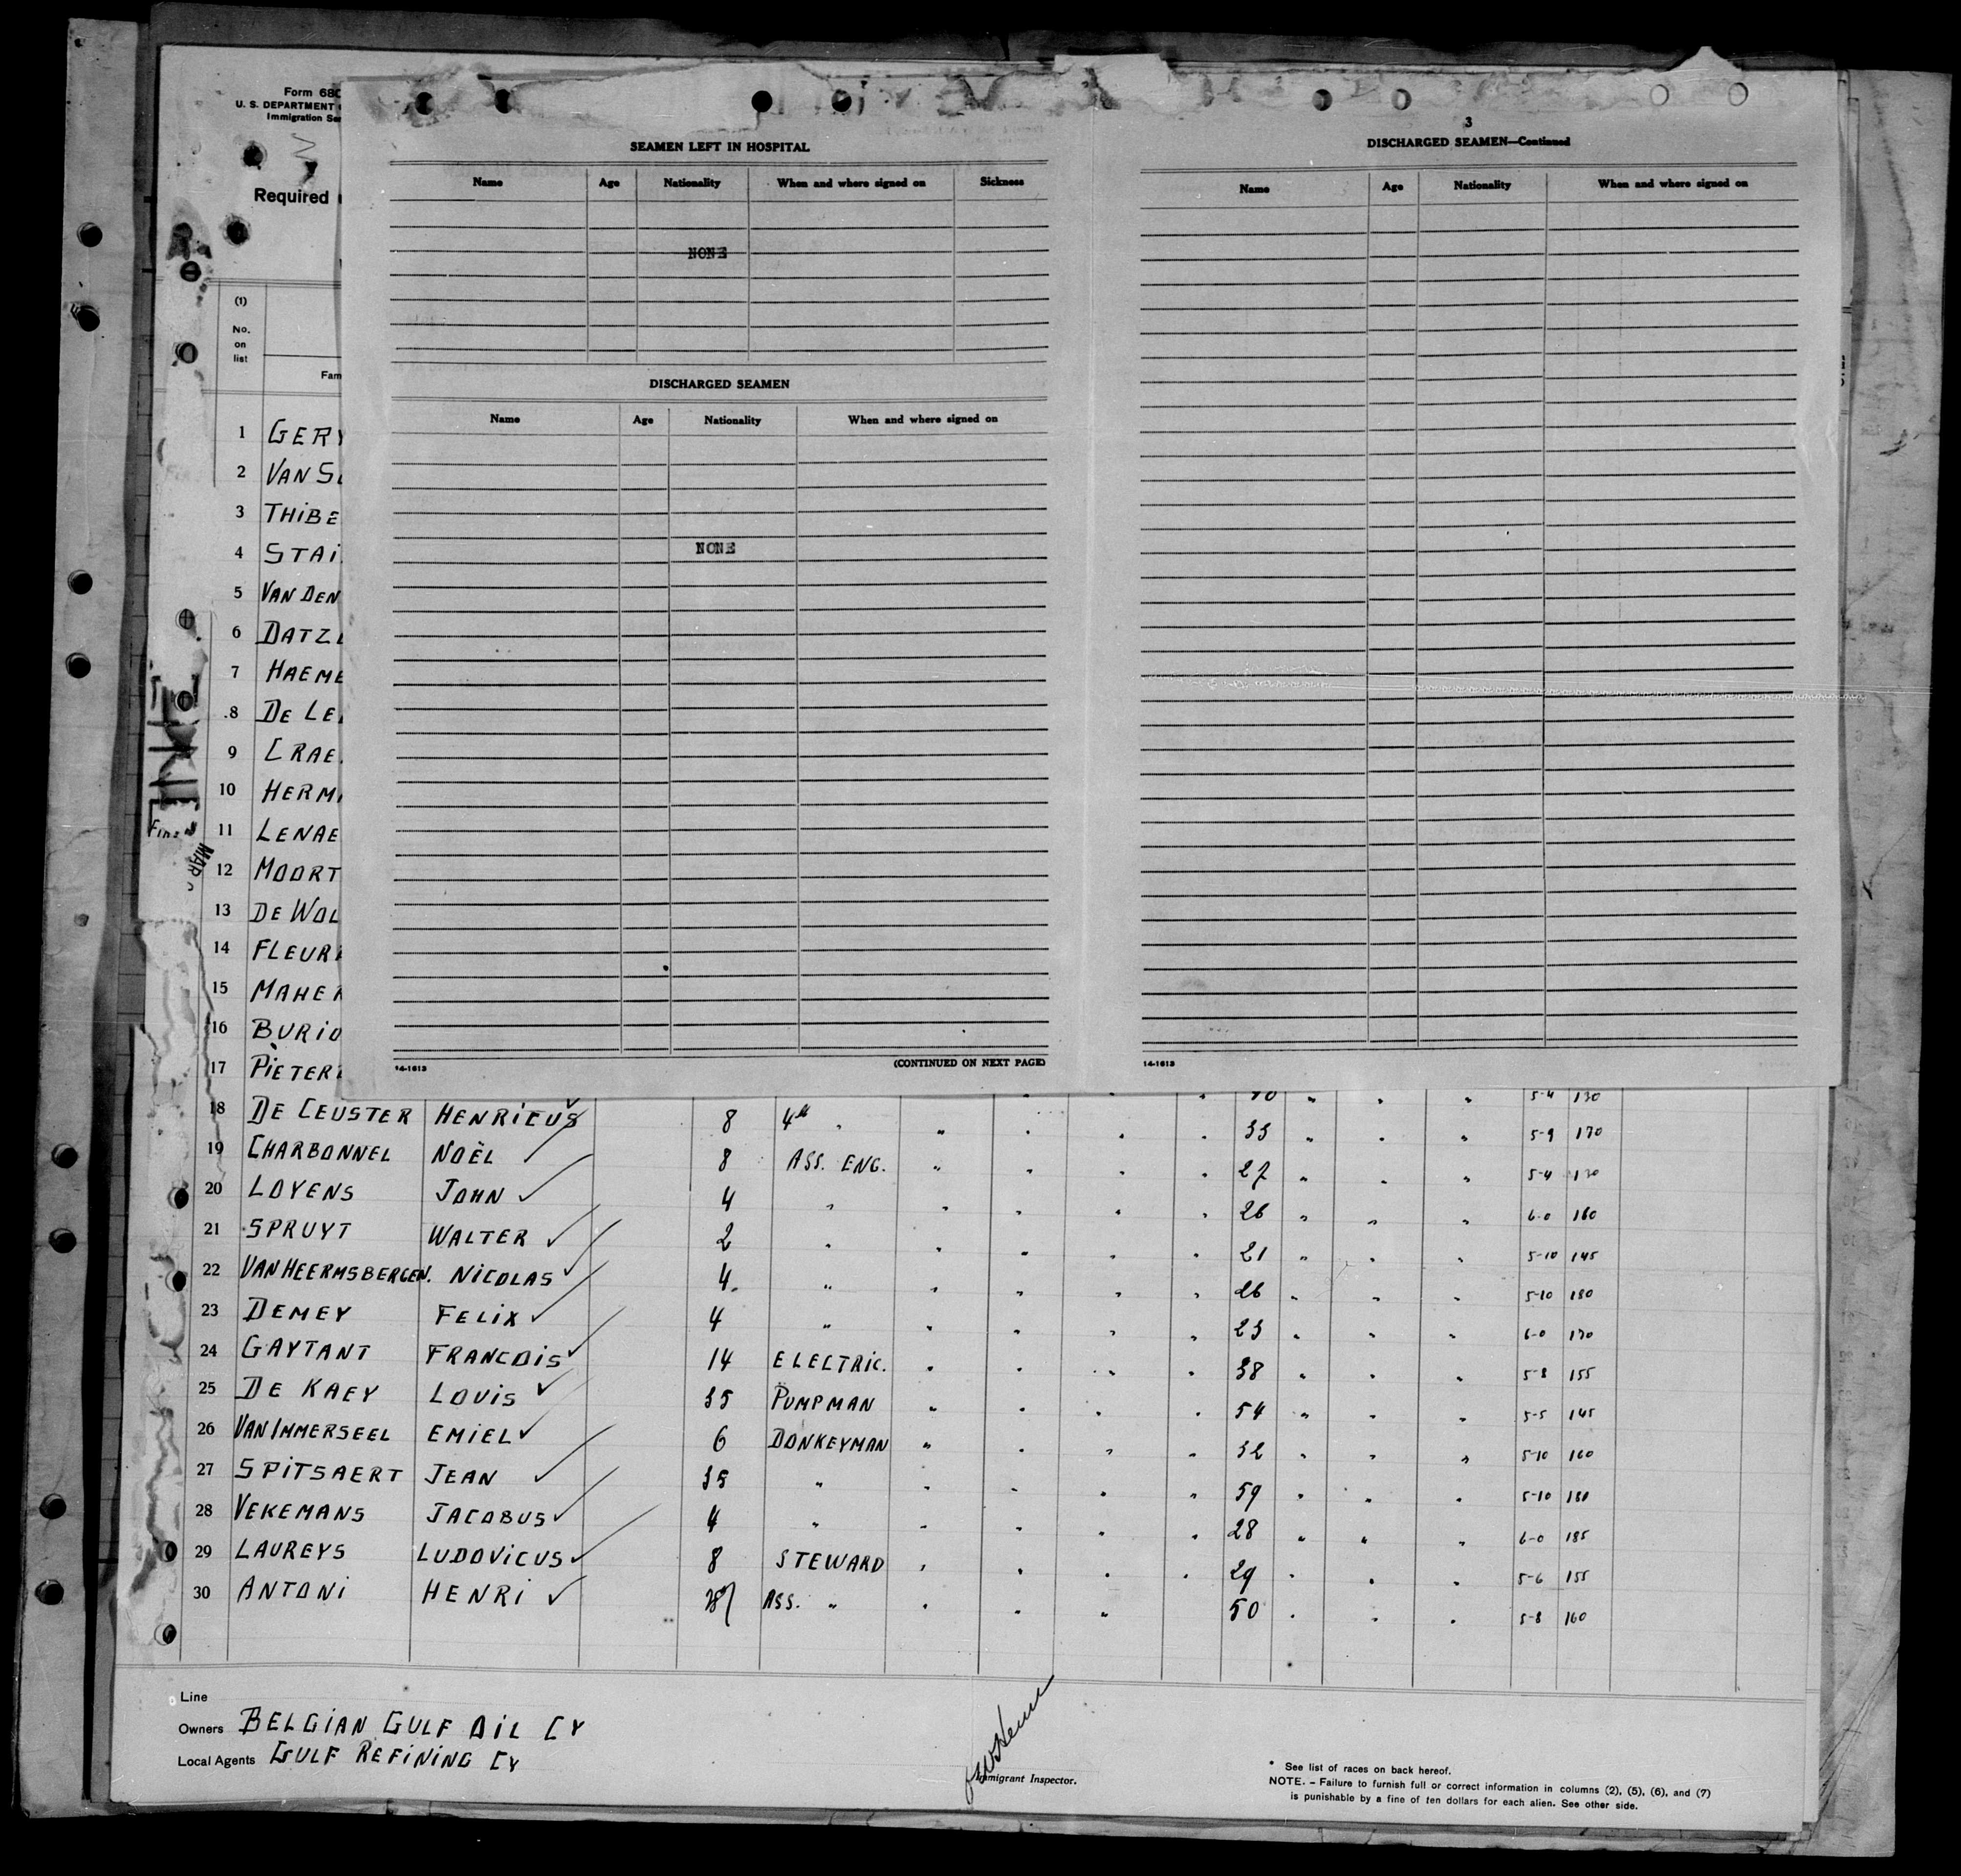 Form 680
U. S. DEPARTMENT
Immigration Ser
Required
(1)
No.
on
list
Fam
SEAMEN LEFT IN HOSPITAL
Name Age Nationality When and where signed on Sickness
NONE
DISCHARGED SEAMEN
Name Age Nationality When and where signed on
NONE
14-1613 (CONTINUED ON NEXT PAGE)
3
DISCHARGED SEAMEN—Continued
Name Age Nationality When and where signed on
14-1613
1 GERY
2 VAN S
3 THIBE
4 STAI
5 VAN DEN
6 DATZL
7 HAEME
8 DE LE
9 CRAE
10 HERM
11 LENAE
12 MOORT
13 DE WOL
14 FLEUR
15 MAHER
16 BURIO
17 PIETER
5-4 130
18 DE CEUSTER HENRICUS 8 4th " " " " " 33 " " " 5-9 170
19 CHARBONNEL NOËL 8 ASS. ENG. " " " " 27 " " " 5-4 130
20 LOYENS JOHN 4 " " " " " 26 " " " 6-0 160
21 SPRUYT WALTER 2 " " " " " 21 " " " 5-10 145
22 VAN HEERMSBERGEN. NICOLAS 4. " " " " " 26 " " " 5-10 180
23 DEMEY FELIX 4 " " " " " 23 " " " 6-0 170
24 GAYTANT FRANCOIS 14 ELECTRIC. " " " " 38 " " " 5-8 155
25 DE KAEY LOUIS 35 PUMPMAN " " " " 54 " " " 5-5 145
26 VAN IMMERSEEL EMIEL 6 DONKEYMAN " " " " 32 " " " 5-10 160
27 SPITSAERT JEAN 35 " " " " " 59 " " " 5-10 180
28 VEKEMANS JACOBUS 4 " " " " " 28 " " " 6-0 185
29 LAUREYS LUDOVICUS 8 STEWARD " " " " 29 " " " 5-6 155
30 ANTONI HENRI 28 ASS. " " " " 50 " " " 5-8 160
Line
Owners BELGIAN GULF OIL CY
Local Agents GULF REFINING CY
Immigrant Inspector.
* See list of races on back hereof.
NOTE. – Failure to furnish full or correct information in columns (2), (5), (6), and (7)
is punishable by a fine of ten dollars for each alien. See other side.